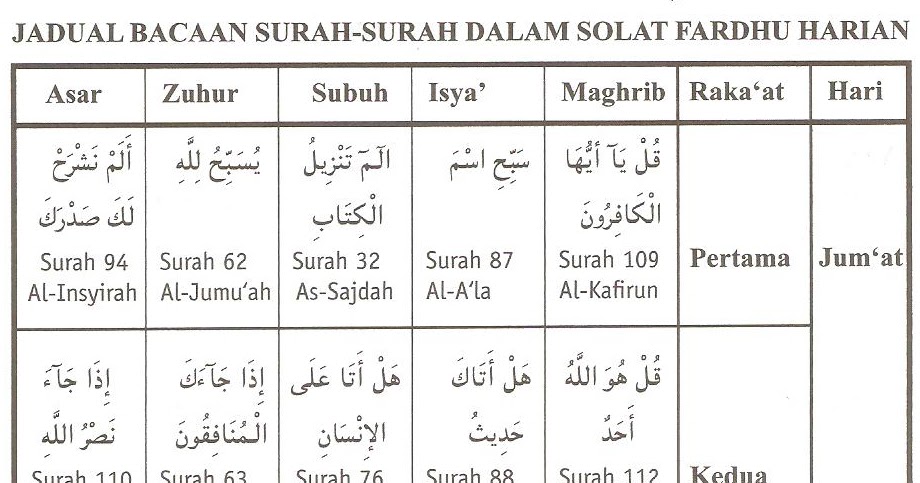 JADUAL BACAAN SURAH-SURAH DALAM SOLAT FARDHU HARIAN
Asar Zuhur Subuh Isya’ Maghrib Raka‘at Hari
أَلَمْ نَشْرَحْ يُسَبِّحُ لِلَّهِ الٓمٓ تَنْزِيلُ سَبِّحِ اسْمَ قُلْ يَآ أَيُّهَا
لَكَ صَدْرَكَ الْكِتَابِ الْكَافِرُونَ
Surah 94 Surah 62 Surah 32 Surah 87 Surah 109 Pertama Jum‘at
Al-Insyirah Al-Jumu‘ah As-Sajdah Al-A‘la Al-Kafirun
إِذَا جَآءَ إِذَا جَآءَكَ هَلْ أَتَا عَلَى هَلْ أَتَاكَ قُلْ هُوَ اللَّهُ
نَصْرُ اللَّهِ الْمُنَافِقُونَ الإِنْسَانِ حَدِيثُ أَحَدٌ
Surah 110 Surah 63 Surah 76 Surah 88 Surah 112 Kedua